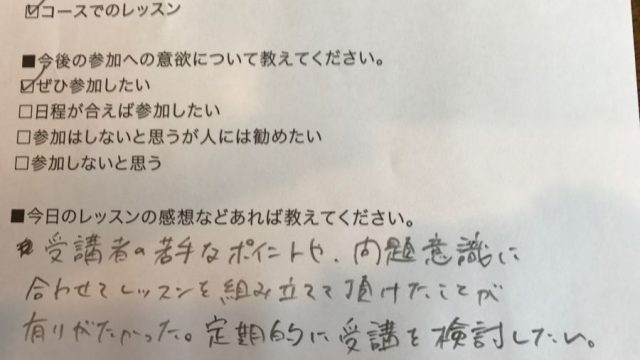 ☑コースでのレッスン
■今後の参加への意欲について教えてください。
☑ぜひ参加したい
□日程が合えば参加したい
□参加はしないと思うが人には勧めたい
□参加しないと思う
■今日のレッスンの感想などあれば教えてください。
受講者の苦手なポイントや、問題意識に
合わせてレッスンを組み立てて頂けたことが
有りがたかった。定期的に受講を検討したい。